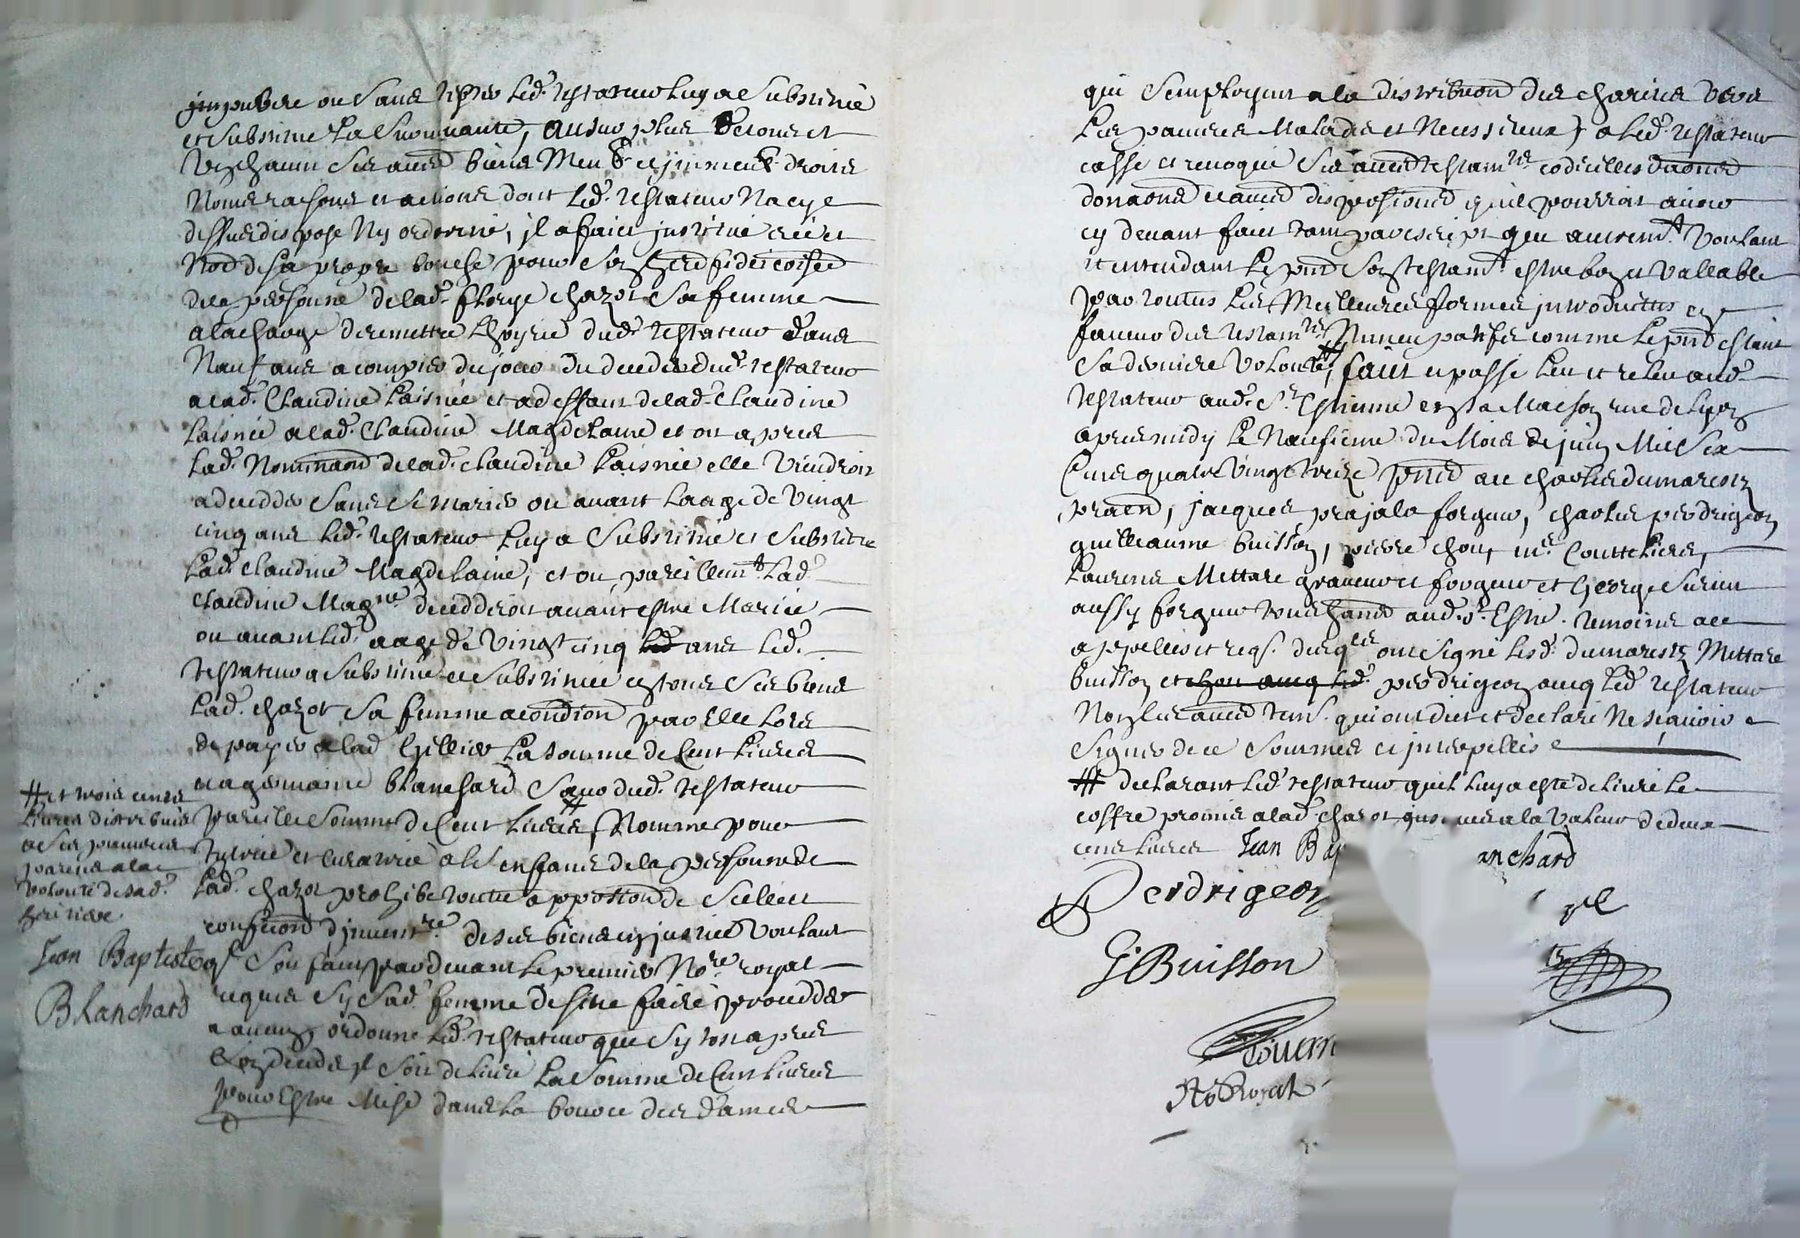 impubere ou sans tester led. testateur luy a substitué
et substitue la survivante, au surplus de tous et
ung chacun ses autres biens meub. et immeub. droits
noms raisons et actions dont led. testateur na cy
dessus dispose ny ordonné, il a faict institué créé et
de sa propre bouche pour son
de la personne de lad. Chazot sa femme
a la charge de remettre Lhoyrie dud. testateur dans
neuf ans a compter du jour du deceds dud. testateur
a lad. Claudine laisnée et a deffaut de lad. Claudine
laisnée a lad. Claudine Magdelaine et ou apres
lad. de lad. Claudine laisnée elle viendroit
a decedder sans se marier ou avant laage de vingt
cinq ans led. testateur luy a substitué et substitue
lad. Claudine Magdelaine, et ou pareillemt. lad.
Claudine Magne. decedderoit avant estre mariée
ou avant led. aage de vingt cinq ans led.
testateur a substitué et substitue en tous ses biens
lad. Chazot sa femme a condition par elle lors
de payer a lad. Gillier la somme de cent livres
et a germaine Blanchard seur dud. testateur
pareille somme de cent livres, # Nomme pour
tutrice et curatrice a les enfans de la personne de
lad. Chazot prohibe toutte de scellés
confection dinventre. de ses biens en justice voulant
ql. soit fait pardevant le premier Nore. royal
requis sy sad. femme desire faire procedder
a aucung ordonne led. testateur que sytost apres
son deceds il soit delivré la somme de cent livres
pour estre mise dans la bource des dames
# et trois cents
livres distribués
a ses pauvres
parens a la
volonté de sad.
heritiere
Jean Baptiste
Blanchard
qui semployent a la distribution des charites vers
les pauvres malades et necessiteux, a led. testateur
cassé et revoqué ses autres testamts. codicilles
donations et autres dispositions quil pourroit avoir
cy devant fait tant par escript que autremt. voulant
et entendant le pnt. son testamt. estre bon et vallable
par touttes les meilleures formes introduittes en
faveur des testamts. nuncupatifs comme le pnt. estant
sa derniere volonté, # fait et passé leu et releu aud.
testateur aud. St. Estienne en sa maison rue de Lyon
apres midy le neufieme du mois de juin mil six
cens quatre vingt treize pnts. ad ce Charles dumarestz
, jacques prajalas forgeur, Charles perdrigeon
guilleaume buisson, pierre chou, mres. Couttelliers,
Laurens Mettare graveur et forgeur et George
aussy forgeur tous habts. aud. St. Estne. temoins ad ce
appellés et reqs. desqls. ont signé lesd. dumarestz Mettare
buisson et perdrigeon avecq led. testateur
non les autres tems. qui ont dict et declaré ne sçavoir
signer de ce sommés et interpellés
# declarant led. testateur quil luy a esté delivré le
coffre promis a lad. chazot a la valeur de deux
cens livres Jean Bap anchard
Perdrigeon
G Buisson
Tivern
No Royal